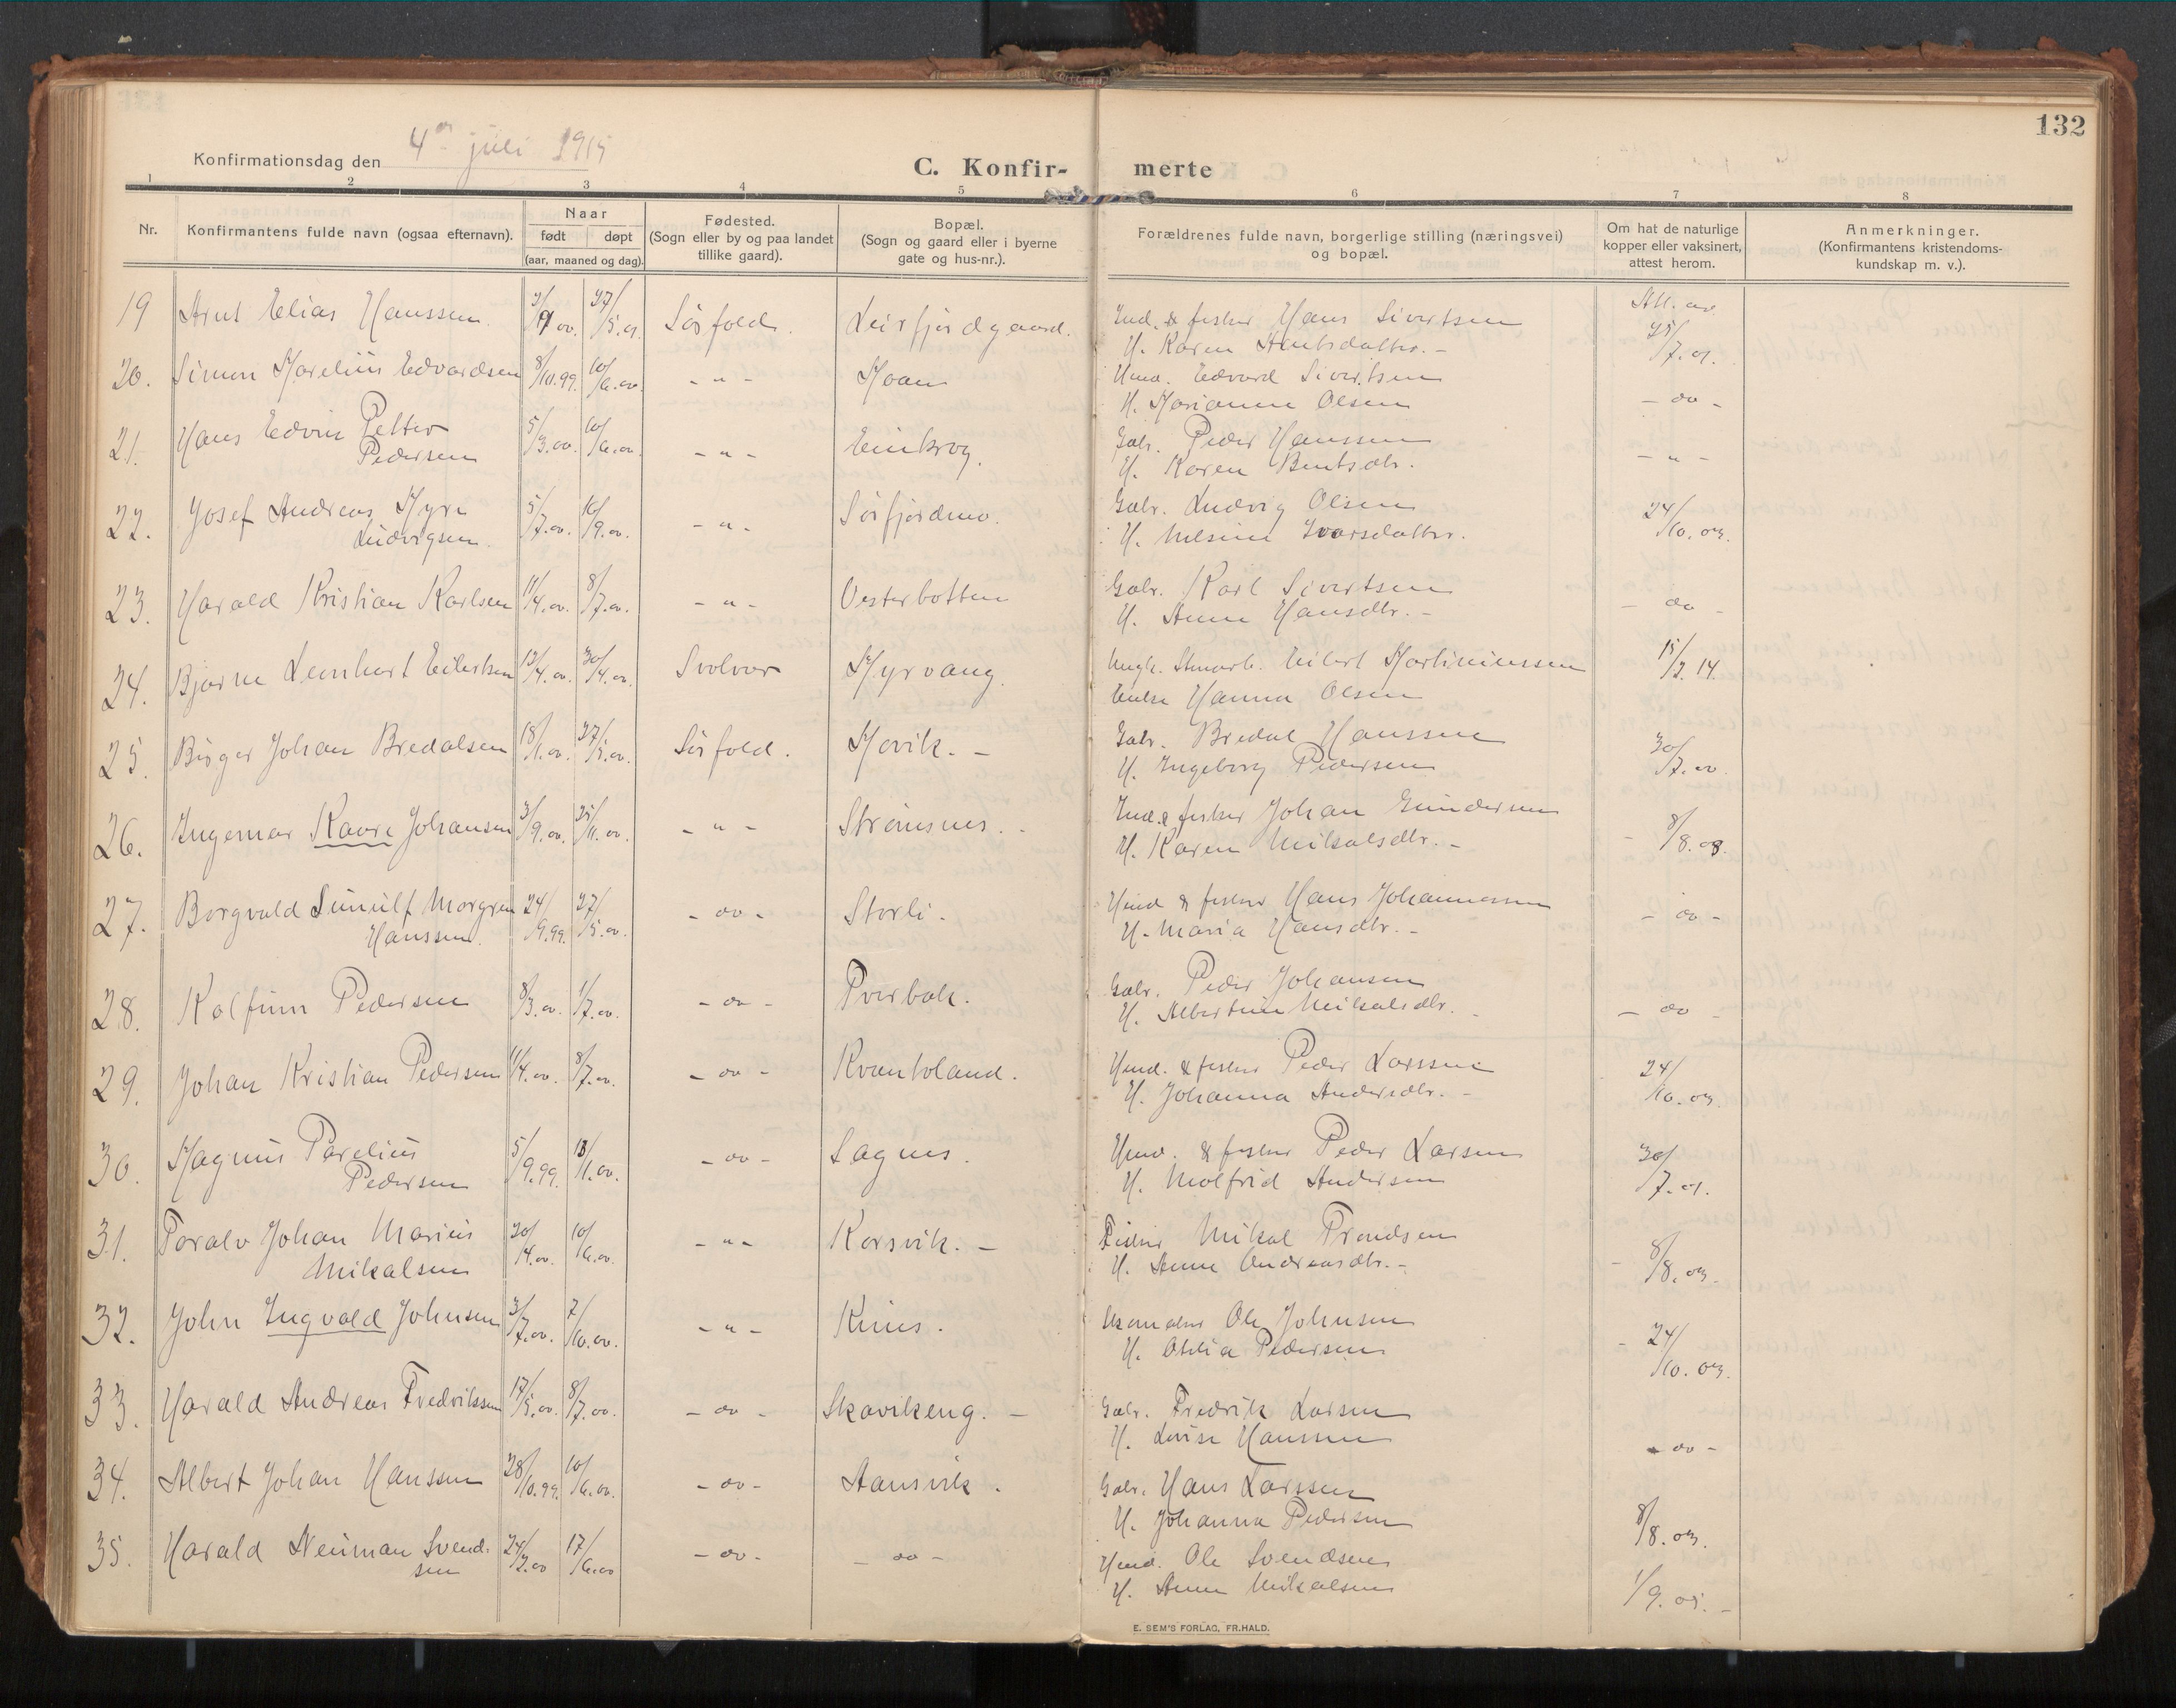 132
Konfirmationsdag den 4de juli 1915
C. Konfir- merte
1 2 3 4 5 6 7 8
Nr.
Konfirmantens fulde navn (ogsaa efternavn).
Naar
født døpt
(aar, maaned og dag).
Fødested.
(Sogn eller by og paa landet
tillike gaard).
Bopæl.
(Sogn og gaard eller i byerne
gate og hus-nr.).
Forældrenes fulde navn, borgerlige stilling (næringsvei)
og bopæl.
Om hat de naturlige
kopper eller vaksinert,
attest herom.
Anmerkninger.
(Konfirmantens kristendoms-
kundskap m. v.).
19 Arnt Elias Hanssen 27/5.01. Sørfold. Leirfjordgaard. Ind. & fisker Hans Sivertsen Att. av
H. Karen Arntsdatter. - 25/7.01.
20. Simon Marelius Edvardsen 8/10.99. 10/6.00. - " - Moan Hmd. Edvard Sivertsen
H. Marianne Olsen - do -
21. Hans Edvin Petter 5/3.00. 10/6.00. - " - Einkrog. Gbr. Peder Hanssen
Pedersen H. Karen Bentsdtr. - " -
22. Josef Andreas Myre 5/7.00. 16/9.00. - " - Sørfjordmo. Gbr. Ludvig Olsen 24/10.03.
Ludvigsen. H. Nelsine Ivarsdatter.
23. Harald Kristian Karlsen 11/4.00. 8/7.00. - " - Vesterbotten Gbr. Karl Sivertsen
H. Anne Hansdtr. - - do -
24. Bjarne Leonhart Eilertsen 12/4.00. 30/4.00. Svolvær Myrvang. Ungk. Eilert Martiniussen 15/3.14.
Enke Hanna Olsen
25. Birger Johan Bredalsen 18/1.00. 27/5.00. Sørfold. Movik. - Gbr. Bredal Hanssen 30/7.00.
H. Ingeborg Pedersen
26. Ingemar Kaare Johansen 3/9.00. 25/11.00. - " - Strømsnes. Ind. & fisker Johan Gundersen
H. Karen Mikalsdtr. - 8/8.08.
27. Borgvald Sunulf Morgren 24/9.99. 27/5.00. - do - Storli. Hmd & fisker Hans Johannessen
Hanssen. H. Maria Hansdtr. - - do -
28. Kolfinn Pedersen 8/3.00. 1/7.00. - do - Tverbak. Gbr. Peder Johansen
H. Albertine Mikalsdtr. - do -
29. Johan Kristian Pedersen 11/4.00. 8/7.00. - do - Kvantoland. Hmd. & fisker Peder Larssen 24/10.03.
H. Johanna Andersdtr. -
30. Magnus Parelius 5/9.99. 13/1.00. - do - Sagnes. Hmd. & fisker Peder Larsen 30/7.01.
Pedersen H. Molfrid Andersen
31. Toralv Johan Marius 20/4.00. 10/6.00. - " - Korsvik. - Fisker Mikal Trondsen
Mikalsen H. Anne Andreasdtr. - 8/8.03.
32. John Ingvald Johnsen 3/7.00. 7/10.00. - " - Kines. Ole Johnsen
H. Otelia Pedersen 24/10.03.
33. Harald Andreas Fredriksen 17/5.00. 8/7.00. - do - Skavikeng. - Gbr. Fredrik Larsen
H. Lovise Hanssen - do -
34. Albert Johan Hanssen 28/10.99. 10/6.00. - do - Aansvik. Gbr. Hans Larssen
H. Johanna Pedersen 8/8.03.
35. Harald Neuman Svend- 24/3.00 17/6.00 - do - - do - Hmd. Ole Svendsen
sen H. Anna Mikalsen 1/9.05. -
E. SEM'S FORLAG, FR.HALD.